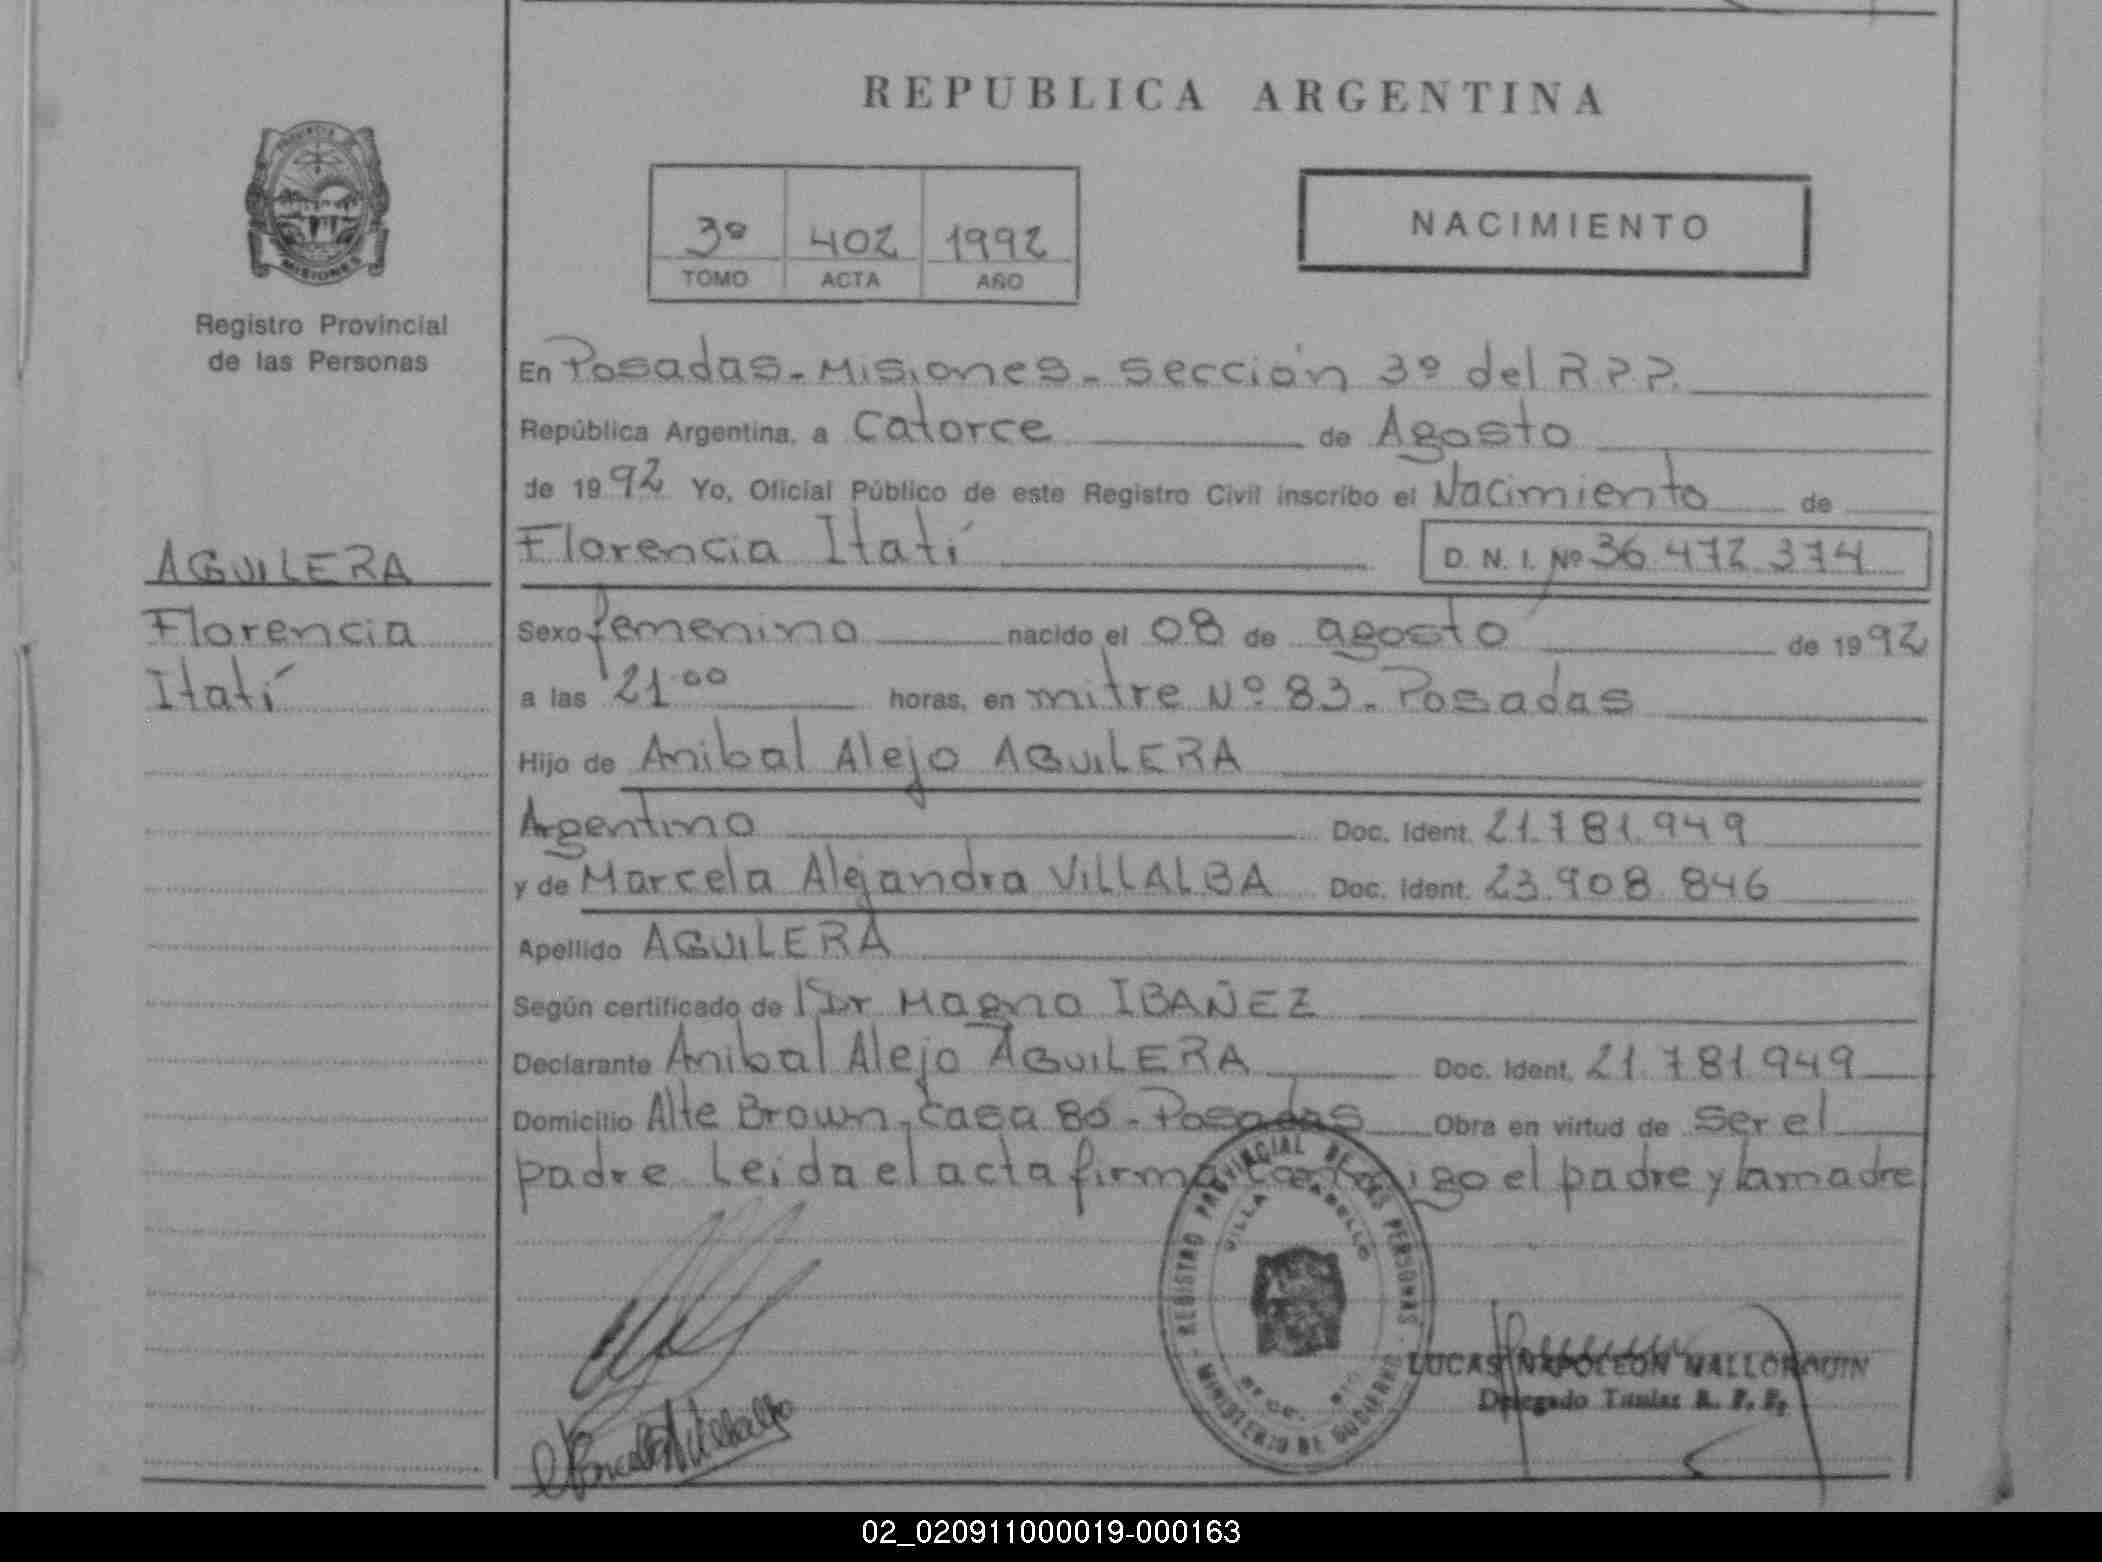 REPUBLICA ARGENTINA
PROVINCIA DE
MISIONES
Registro Provincial
de las Personas
3º 402 1992
TOMO ACTA AÑO
NACIMIENTO
En Posadas - Misiones - sección 3º del R.P.P.
República Argentina, a Catorce de Agosto
de 1992 Yo, Oficial Público de este Registro Civil inscribo el Nacimiento de
Florencia Itatí D. N. I. Nº 36.472.374
AGUILERA
Florencia
Itatí
Sexo femenino nacido el 08 de agosto de 1992
a las 21 00 horas, en mitre Nº 83 - Posadas
Hijo de Anibal Alejo AGUILERA
Argentino Doc. Ident. 21.781.949
y de Marcela Alejandra VILLALBA Doc. Ident. 23.908.846
Apellido AGUILERA
Según certificado de Dr Magno IBAÑEZ
Declarante Anibal Alejo AGUILERA Doc. Ident. 21.781.949
Domicilio Alte Brown - casa 86 - Posadas Obra en virtud de ser el
padre Leida el acta firma conmigo el padre y la madre
REGISTRO PROVINCIAL DE LAS PERSONAS
VILLA
MINISTERIO DE GOBIERNO
LUCAS NAPOLEON MALLORQUIN
Delegado Titular R. P. P.
02_020911000019-000163